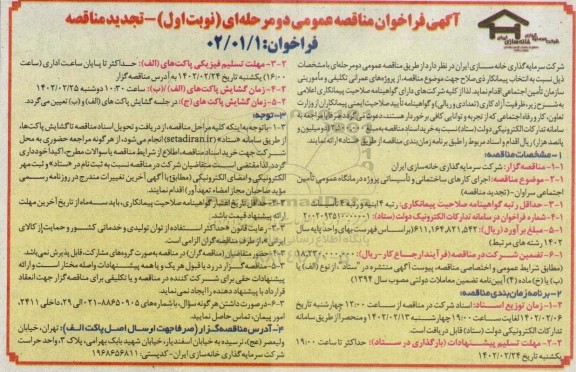 آگهی فراخوان مناقصه عمومی دو مرحله‌ای (نوبت اول) – تجدید مناقصه
فراخوان: ۰۲/۰۱/۱
شرکت سرمایه گذاری خانه سازی ایران در نظر دارد از طریق مناقصه عمومی دو مرحله‌ای با مشخصات
ذیل نسبت به انتخاب پیمانکار ذی صلاح جهت موضوع مناقصه، از پروژه‌های عمرانی تکلیفی و مأموریتی
سازمان تأمین اجتماعی اقدام نماید. لذا از کلیه شرکت‌های دارای گواهینامه صلاحیت پیمانکاری اعلامی
به شرح زیر، ظرفیت آزاد کاری (تعدادی و ریالی) و گواهینامه تأیید صلاحیت ایمنی پیمانکاران از وزارت
تعاون، کار و رفاه اجتماعی که از تجربه و توانایی کافی برخوردار هستند، دعوت می‌گردد
سامانه تدارکات الکترونیکی دولت (ستاد) نسبت به خرید اسناد مناقصه به مبلغ
پانصد هزار) ریال اقدام و اسناد مربوط را طبق برنامه زمان‌بندی مناقصه از طریق «ستاد» ارائه نمایند.
۱- مشخصات مناقصه:
۱-۱- مناقصه گزار: شرکت سرمایه گذاری خانه سازی ایران
۲-۱- موضوع مناقصه: اجرای کارهای ساختمانی و تأسیساتی پروژه درمانگاه عمومی تأمین
اجتماعی سراوان - (تجدید مناقصه)
۳-۱- حداقل رتبه گواهینامه صلاحیت پیمانکاری: رتبه
۴-۱- شماره فراخوان در سامانه تدارکات الکترونیک دولت (ستاد):
۵-۱- مبلغ برآورد (ریال): ۶۱۱,۱۶۴,۸۲۱,۵۴۲ (بر اساس فهرست بهای واحد پایه سال
۱۴۰۲ رشته های مرتبط)
۶-۱- تضمین شرکت در مناقصه (فرآیند ارجاع کار - ریال):
مطابق شرایط عمومی و اختصاصی مناقصه، پیوست آگهی منتشره در "ستاد"، از نوع (الف) یا
(ب) یا (خ) ماده (۴) آیین نامه تضمین معاملات دولتی مصوب سال ۱۳۹۴)
۲- برنامه زمان‌بندی مناقصه:
۱-۲- زمان توزیع اسناد: اسناد شرکت در مناقصه از ساعت ۱۲:۰۰ چهارشنبه تاریخ
۱۴۰۲/۰۲/۰۶ لغایت ساعت ۱۹:۰۰ چهارشنبه ۱۴۰۲/۰۲/۱۳ و منحصر از طریق سامانه
تدارکات الکترونیکی دولت (ستاد) قابل دریافت است.
۲-۲- مهلت تسلیم پیشنهادات (بارگذاری در ستاد): حداکثر تا ساعت ۱۹:۰۰
یکشنبه تاریخ ۱۴۰۲/۰۲/۲۴
۳-۲- مهلت تسلیم فیزیکی پاکت‌های (الف): حداکثر تا پایان ساعت اداری (ساعت
۱۶:۰۰) یکشنبه تاریخ ۱۴۰۲/۰۲/۲۴ به آدرس مناقصه گزار
۴-۲- زمان گشایش پاکت‌های (الف)/(ب): ساعت ۱۰:۳۰ دوشنبه ۱۴۰۲/۰۲/۲۵
۵-۲- زمان گشایش پاکت های (ج): در جلسه گشایش پاکت های (الف) و (ب) تعیین می‌گردد.
۳- توجه:
۱-۳- با توجه به اینکه کلیه مراحل مناقصه، از دریافت و تحویل اسناد مناقصه تا گشایش پاکت‌ها،
از طریق سامانه «ستاد» (setadiran.ir) انجام می‌شود، از هرگونه مراجعه حضوری به محل
شرکت جهت خرید اسناد مناقصه، اطلاع از شرایط مناقصه یا سوالات مطرح، اکیدا خودداری
گردد. لذا مقتضی است متقاضیان شرکت در مناقصه نسبت به ثبت نام در «ستاد» و ثبت مهر
الکترونیکی و امضای الکترونیکی (مطابق با آگهی آخرین تغییرات مندرج در روزنامه رسمی
موید صاحبان مجاز امضاء تعهدآور) اقدام نمایند.
حداقل تاریخ اعتبار گواهینامه صلاحیت پیمانکاری، باید سه ماه از تاریخ آخرین مهلت
ارائه پیشنهاد قیمت باشد.
۳-۳- رعایت قانون «حداکثر استفاده از توان تولیدی و خدماتی کشور و حمایت از کالای
ایرانی»، از طرف مناقصه گران الزامی است.
حضور متقاضیان (مناقصه گران)، در مناقصه به صورت گروه‌های مشارکت، قابل پذیرش نمی‌باشد.
۵-۳- مناقصه گزار در رد یا قبول هر یک و یا همه پیشنهادات واصله مختار است و ارائه
پیشنهادات حقی برای شرکت کننده در مناقصه و یا تکلیفی برای مناقصه گزار جهت انعقاد
قرارداد با پیشنهاد دهنده را ایجاد نمی نماید.
۶-۳- در صورت داشتن هرگونه سؤال، با شماره‌های ۸۸۶۵۰۹۰۵-۰۲۱ الی ۲۹، داخلی ۲۴۱۱،
امور پیمان، تماس حاصل نمایید.
۴- آدرس مناقصه گزار (صرفا جهت ارسال اصل پاکت الف): تهران، خیابان
ولیعصر (عج)، نرسیده به خیابان اسفندیار، خیابان شهید بابک بهرامی، پلاک ۳، واحد حراست
شرکت سرمایه گذاری خانه سازی ایران - کدپستی: ۱۹۶۸۶۵۶۸۱۱